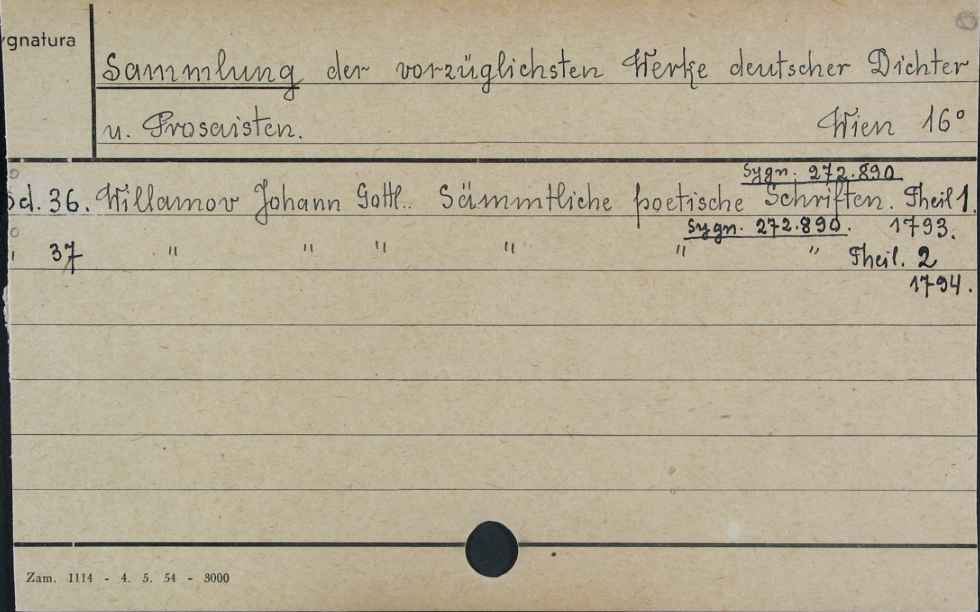 ygnatura
Sammlung der vorzüglichsten Werke deutscher Dichter
u. Prosaisten. Wien 16°
Sygn. 272.890
Bd. 36. Willamov Johann Gottl.. Sämmtliche poetische Schriften. Theil 1.
Sygn. 272.890. 1793.
" 37 " " " " " " Theil. 2
1794.
Zam. 1114 - 4. 5. 54 - 3000